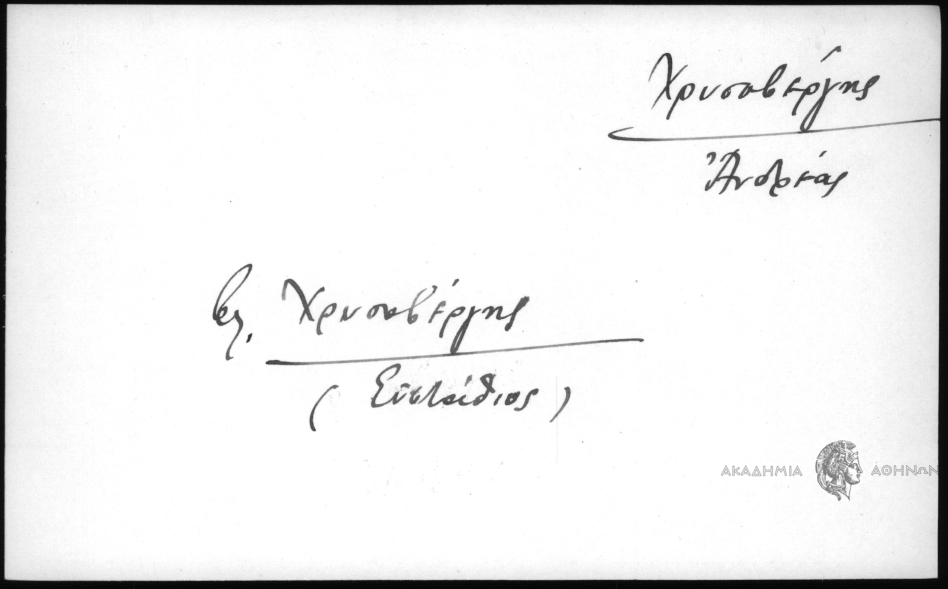 Χρυσοβέργης
Ἀνδρέας
βλ. Χρυσοβέργης
(Εὐστάθιος)
ΑΚΑΔΗΜΙΑ ΑΘΗΝΩΝ